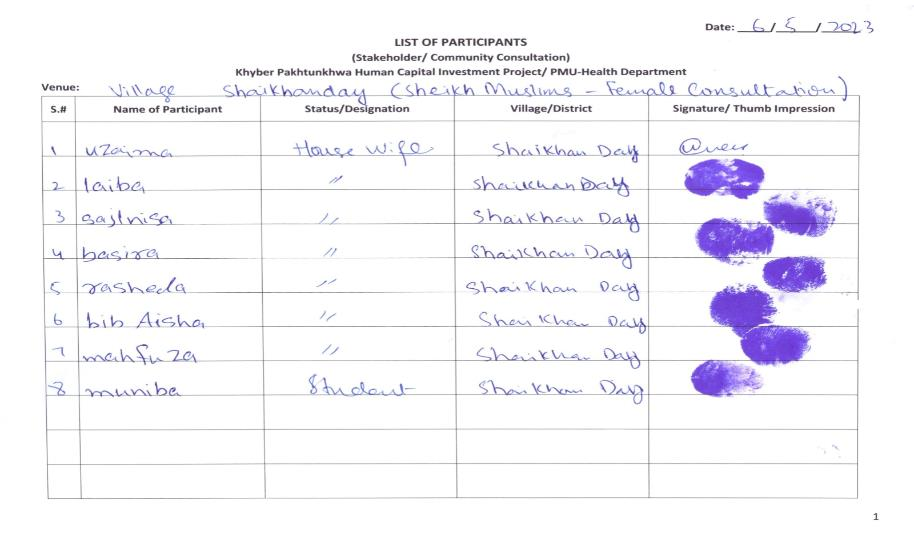 Date: 6/5/2023
LIST OF PARTICIPANTS
(Stakeholder/ Community Consultation)
Khyber Pakhtunkhwa Human Capital Investment Project/ PMU-Health Department
Venue: Village Shaikhanday (Sheikh Muslims - Female Consultation)
S.# Name of Participant Status/Designation Village/District Signature/ Thumb Impression
1 uzaima House wife Shaikhan Day
2 laiba " Shaikhan Day
3 sajlnisa " Shaikhan Day
4 basira " Shaikhan Day
5 rasheda " Shaikhan Day
6 bib Aisha " Shaikhan Day
7 mahfuza " Shaikhan Day
8 muniba Student Shaikhan Day
1